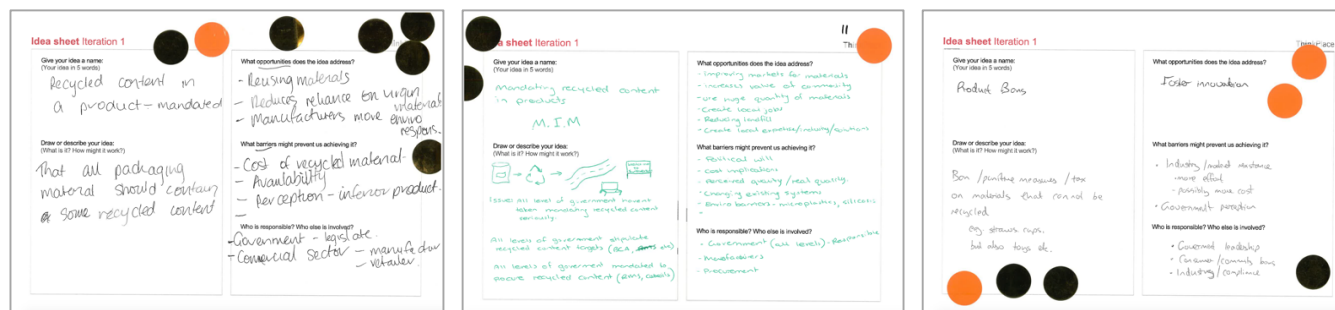 Idea sheet Iteration 1
Give your idea a name:
(Your idea in 5 words)
Recycled content in
a product - mandated
Draw or describe your idea:
(What is it? How might it work?)
That all packaging
material should contain
some recycled content
What opportunities does the idea address?
- Reusing materials
- Reduces reliance on virgin
materials
- Manufacturers more enviro
respons.
What barriers might prevent us achieving it?
- Cost of recycled material
- Availability
- Perception - inferior product.
-
Who is responsible? Who else is involved?
- Government - legislate.
- Comercial sector - manufactur
- retailer.
sheet Iteration 1
Give your idea a name:
(Your idea in 5 words)
Mandating recycled content
in products
M.I.M
Draw or describe your idea:
(What is it? How might it work?)
Issue: All level of government haven't
taken mandating recycled content
seriously.
All levels of government stipulate
recycled content targets
All levels of goverment mandated to
procure recycled content
11
What opportunities does the idea address?
- Improving markets for materials
- increases value of commodity
- use huge quantity of materials
- Create local jobs
- Reducing landfill
- Create local
What barriers might prevent us achieving it?
- Political will
- Cost implications
- Perceived quality/real quality.
- Changing existing systems
- Enviro barriers - microplastics,
Who is responsible? Who else is involved?
- Government (all levels) - Responsible
- Manufacturers
- Procurement
Idea sheet Iteration 1
ThinkPlace
Give your idea a name:
(Your idea in 5 words)
Product Bans
Draw or describe your idea:
(What is it? How might it work?)
Ban / punitive measures / tax
on materials that cannot be
recycled
eg. straws, cups.
but also toys etc.
What opportunities does the idea address?
Foster innovation
What barriers might prevent us achieving it?
• Industry/market resistance
- more effort
- possibly more cost
• Government perception
Who is responsible? Who else is involved?
• Government leadership
• Consumer/community
• Industry/compliance